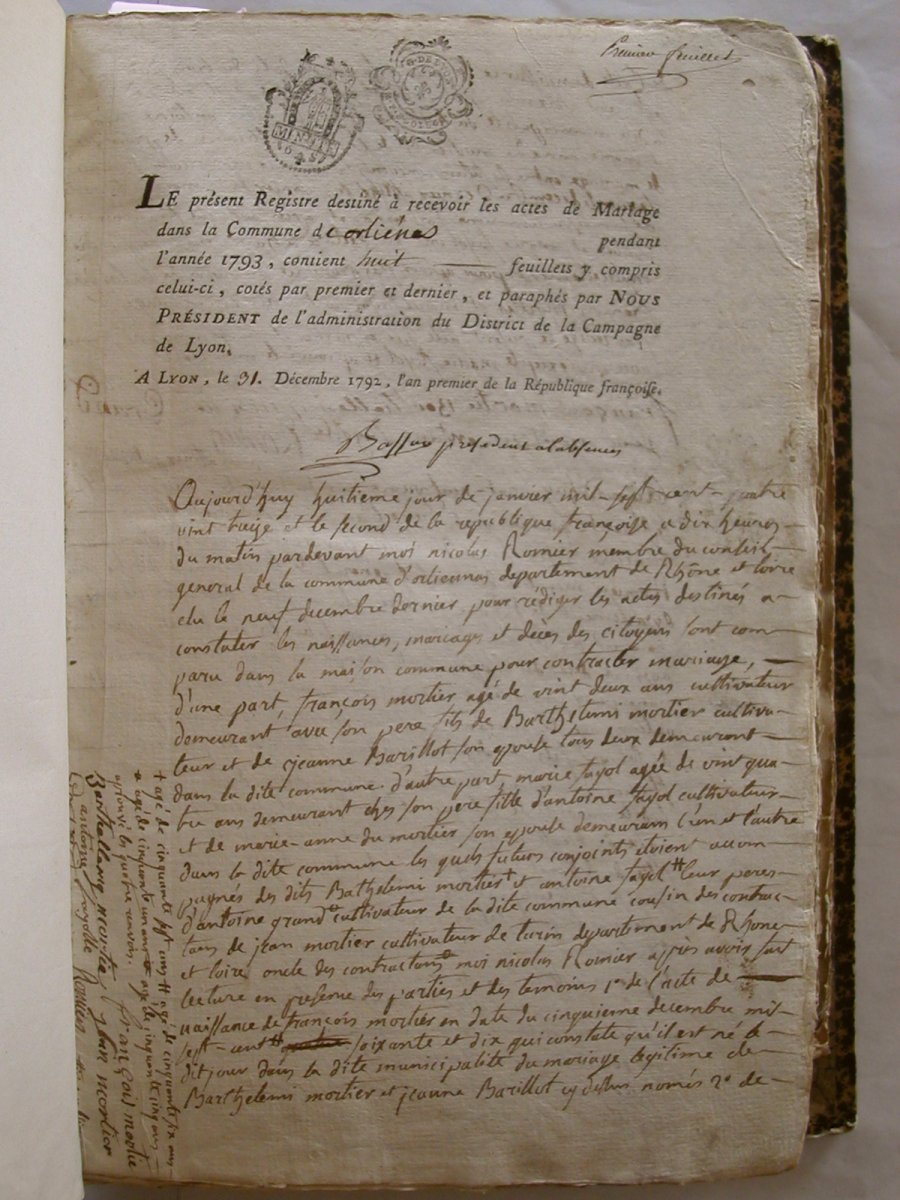 Premier feuillet
MINUTE
LE présent Registre destiné à recevoir les actes de Mariage
dans la Commune d'orliénas pendant
l'année 1793, contient huit feuillets y compris
celui-ci, cotés par premier et dernier, et paraphés par NOUS
PRÉSIDENT de l'administration du District de la Campagne
de Lyon.
A LYON, le 31. Décembre 1792, l'an premier de la République françoise.
president
Aujourd'huy huitieme jour de janvier mil-sept-cent-quatre
vint treize et le second de la republique françoise a dix heures
du matin pardevant moi nicolas Romier membre du conseil
general de la commune d'orliennas departement de Rhône et loire
elu le neuf decembre dernier pour rediger les actes destinés a
constater les naissances, mariages et decès des citoyens sont com-
paru dans la maison commune pour contracter mariage,
d'une part, françois mortier agé de vint deux ans cultivateur
demeurant avec son pere fils de Barthelemi mortier cultiva-
teur et de jeanne Barillot son epouse tous deux demeurant
dans la dite commune d'autre part marie fayol agée de vint qua-
tre ans demeurant ches son pere fille d'antoine fayol cultivateur
et de marie-anne du mortier son epouse demeurant l'un et l'autre
dans la dite commune les quels futurs conjoints etoient accom-
pagnés des dits Bathelemi mortier+ et antoine fayol++ leur peres
d'antoine grand cultivateur de la dite commune cousin des contrac-
tans de jean mortier cultivateur de departement de Rhone
et loire oncle des contractans moi nicolas Romier appres avoir fait
lecture en presense des parties et des temoins 1° de l'acte de
naissance de françois mortier en date du cinquieme decembre mil
sept-cent soixante et dix qui constate qu'il est né le
dit jour dans la dite municipalité du mariage legitime de
Barthelemi mortier et jeanne Barillot cy dessus només 2° de
+ agé de cinquante sept ans ++ agé de cinquante six ans
agé de cinquante un ans agé de cinquante cinq ans
aprouvé les quatre renvois.
Barthellemy mortie françois mortie
antoine fayolle jean mortier
Romier